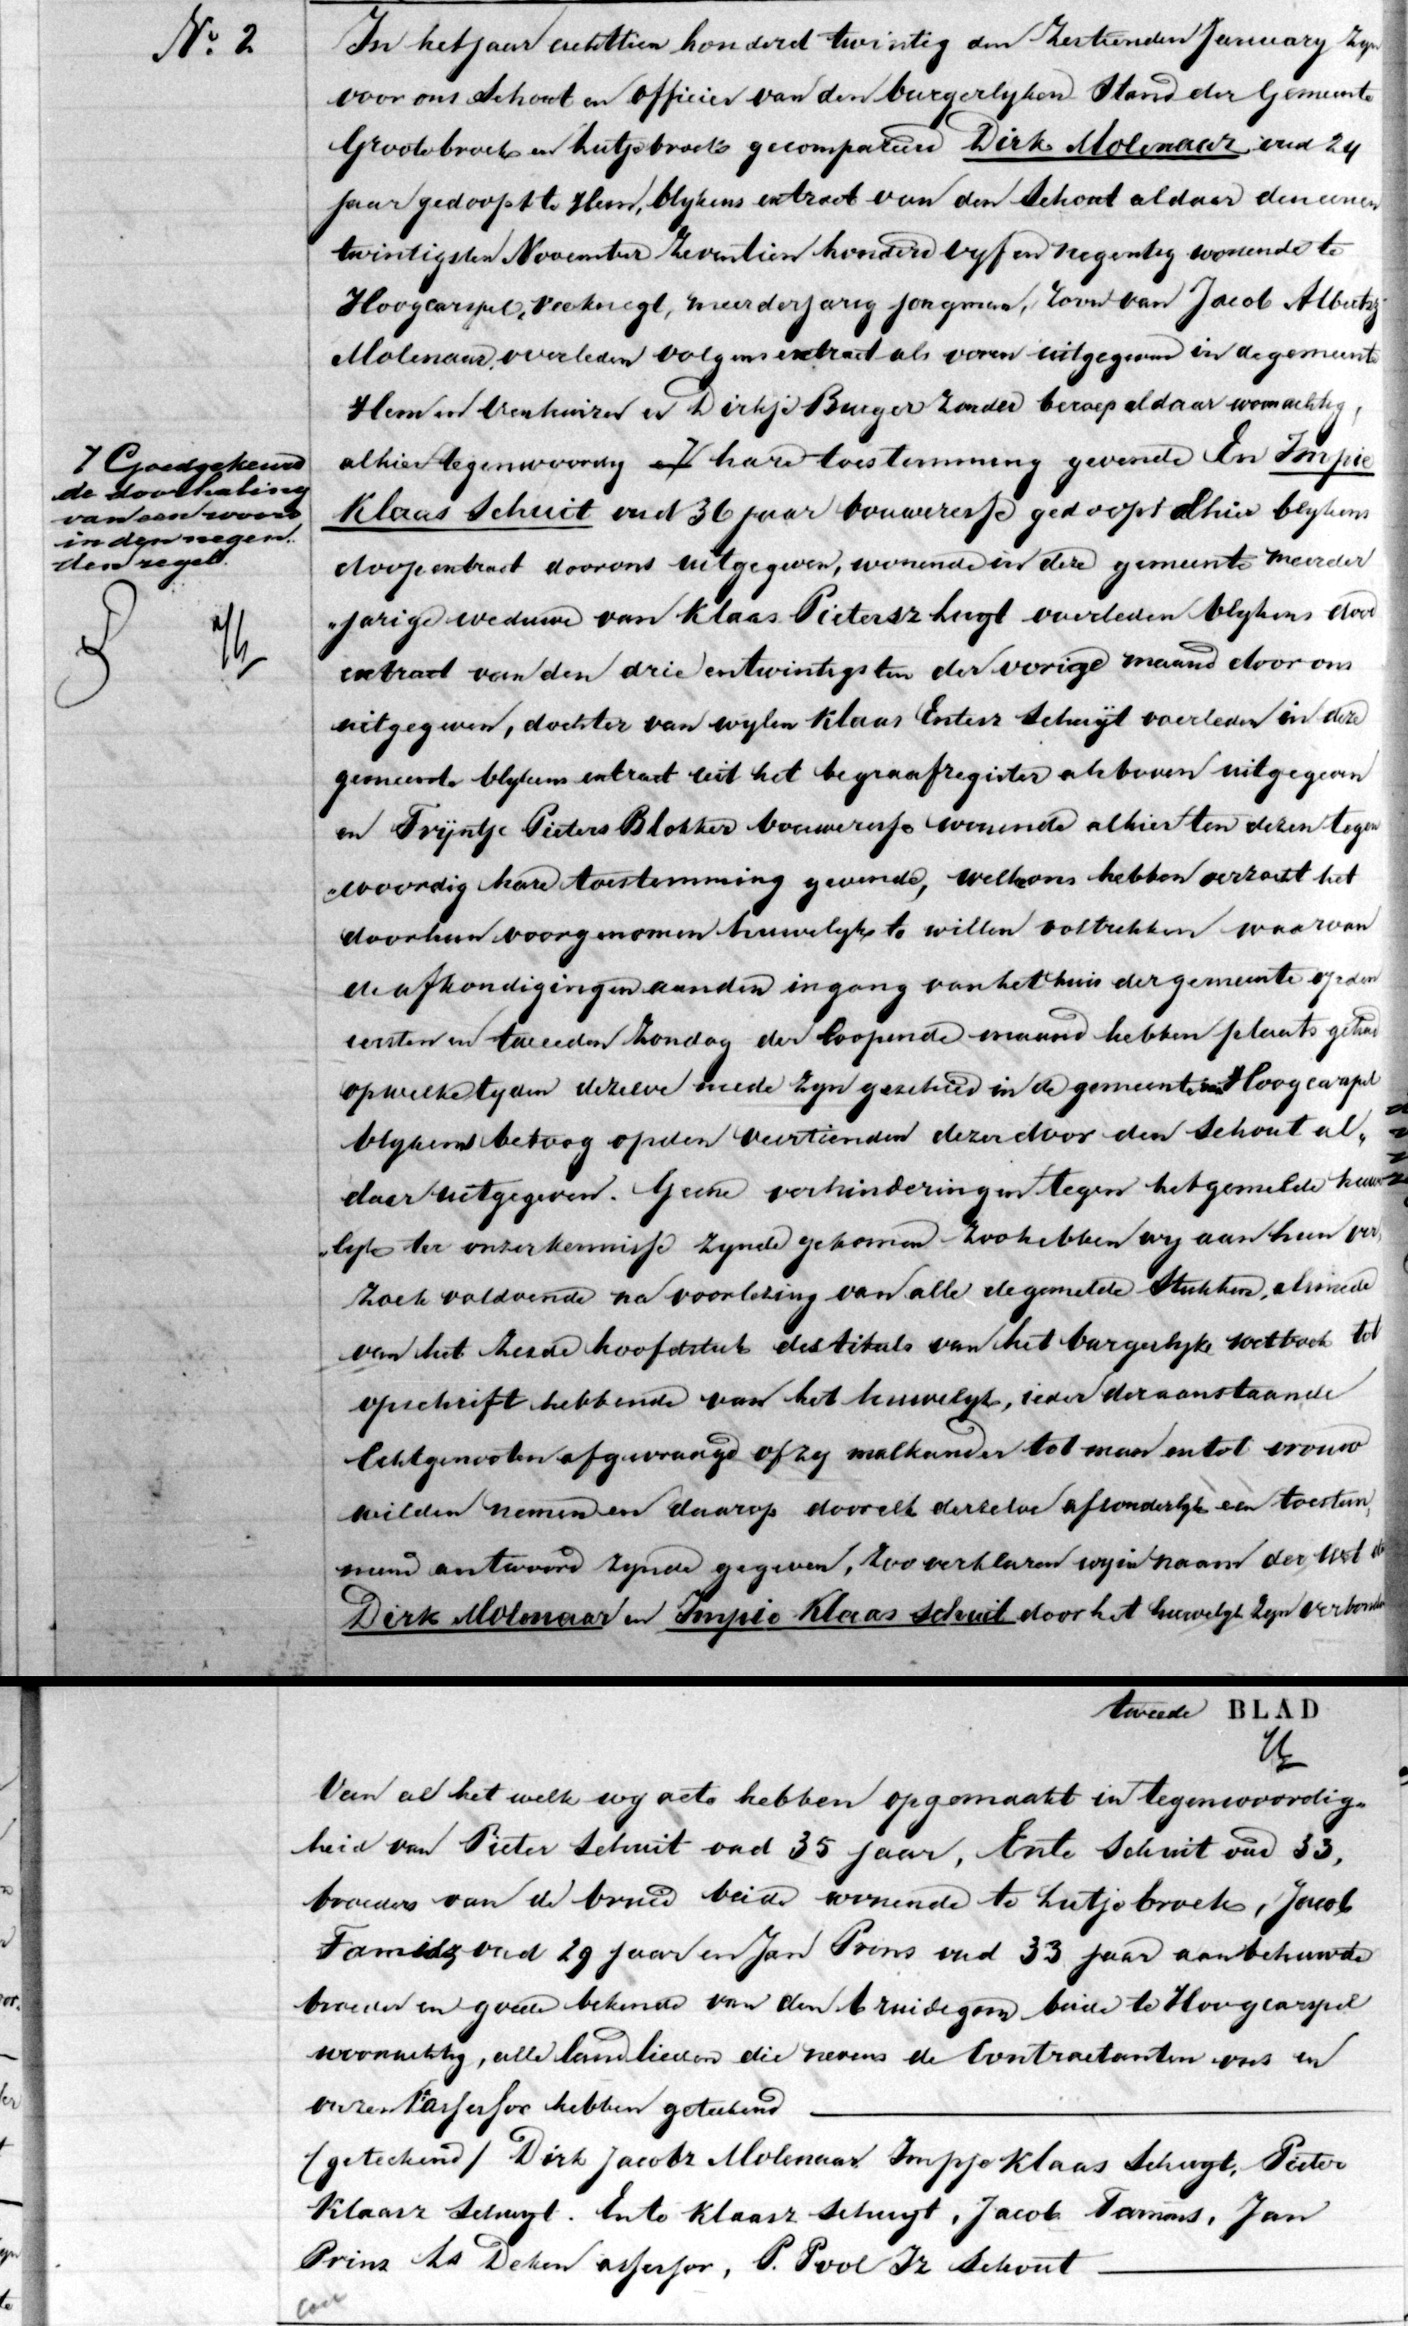 No. 2
In het jaar achttien honderd twintig den Zestienden January zyn
voor ons Schout en Officier van den burgerlyken Stand der Gemeente
Grootebroek en Lutjebroek gecompareerd Dirk Molenaar oud 24
jaar gedoopt te Hem, blykens extract van den Schout aldaar den eenen
twintigsten November Zeventien honderd vyf en negentig wonende te
Hoogcarspel, Veeknegt, meerderjarig jongman, Zoon van Jacob Albertsz
Molenaar, overleden volgens extract als voren uitgegeven in de gemeente
Hem en Venhuizen en Dirkje Burger Zonder beroep aldaar woonachtig,
alhier tegenwoordig hare toestemming gevende En Impie
Klaas Schuit oud 36 jaar bouweresse gedoopt alhier blykens
doopextract door ons uitgegeven, wonende in deze gemeente meerder
"jarige weduwe van Klaas Pietersz Lugt overleden blykens dood
extract van den drie en twintigsten der vorige maand door ons
uitgegeven, dochter van wylen Klaas Entesz Schuyt overleden in deze
gemeente blykens extract uit het begraafregister als boven uitgegeven
en Trijntje Pieters Blokker bouweresse wonende alhier ten dezen tegen
"woordig hare toestemming gevende, welke ons hebben verzocht het
door hun voorgenomen huwelyk te willen voltrekken waarvan
de afkondigingen aan den ingang van het huis der gemeente op den
eersten en tweeden Zondag der loopende maand hebben plaats gehad
op welke tyden dezelve mede zyn geschied in de gemeente Hoogcarspel
blykens betoog op den Veertienden dezer door den Schout al„
daar uitgegeven. Geene verhinderingen tegen het gemelde huwe
„lyk ter onzer kennisse zynde gekomen Zoo hebben wy aan hun ver„
zoek voldoende na voorlezing van alle de gemelde Stukken, alsmede
van het Zesde hoofdstuk des titels van het burgerlyke wetboek tot
opschrift hebbende van het huwelyk, ieder der aanstaande
Echtgenooten afgevraagd of zy malkander tot man en tot vrouw
wilden nemen en daarop door elk derzelve afzonderlyk een toestem„
mend antwoord zynde gegeven, Zoo verklaren wy in naam der Wet dat
Dirk Molenaar en Impie Klaas Schuit door het huwelyk zyn verbonden
7 Goedgekeurd
de doorhaling
van een woord
in den negen„
den regel.
tweede BLAD
Van al het welk wy acte hebben opgemaakt in tegenwoordig„
heid van Pieter Schuit oud 35 jaar, Ente Schuit oud 33,
broeders van de bruid beide wonende te Lutjebroek, Jacob
oud 29 jaar en Jan Prins oud 33 jaar aanbehuwde
broeder en goede bekende van den bruidegom beide te Hoogcarspel
woonachtig, alle landlieden die nevens de Contractanten ons en
onzen assessor hebben geteekend
(geteekend) Dirk Jacobz Molenaar Impje Klaas Schuyt, Pieter
Klaasz Schuyt. Ente Klaasz Schuyt, Jacob Jan
Prins Ls Deken assessor, P. Pool Jz Schout